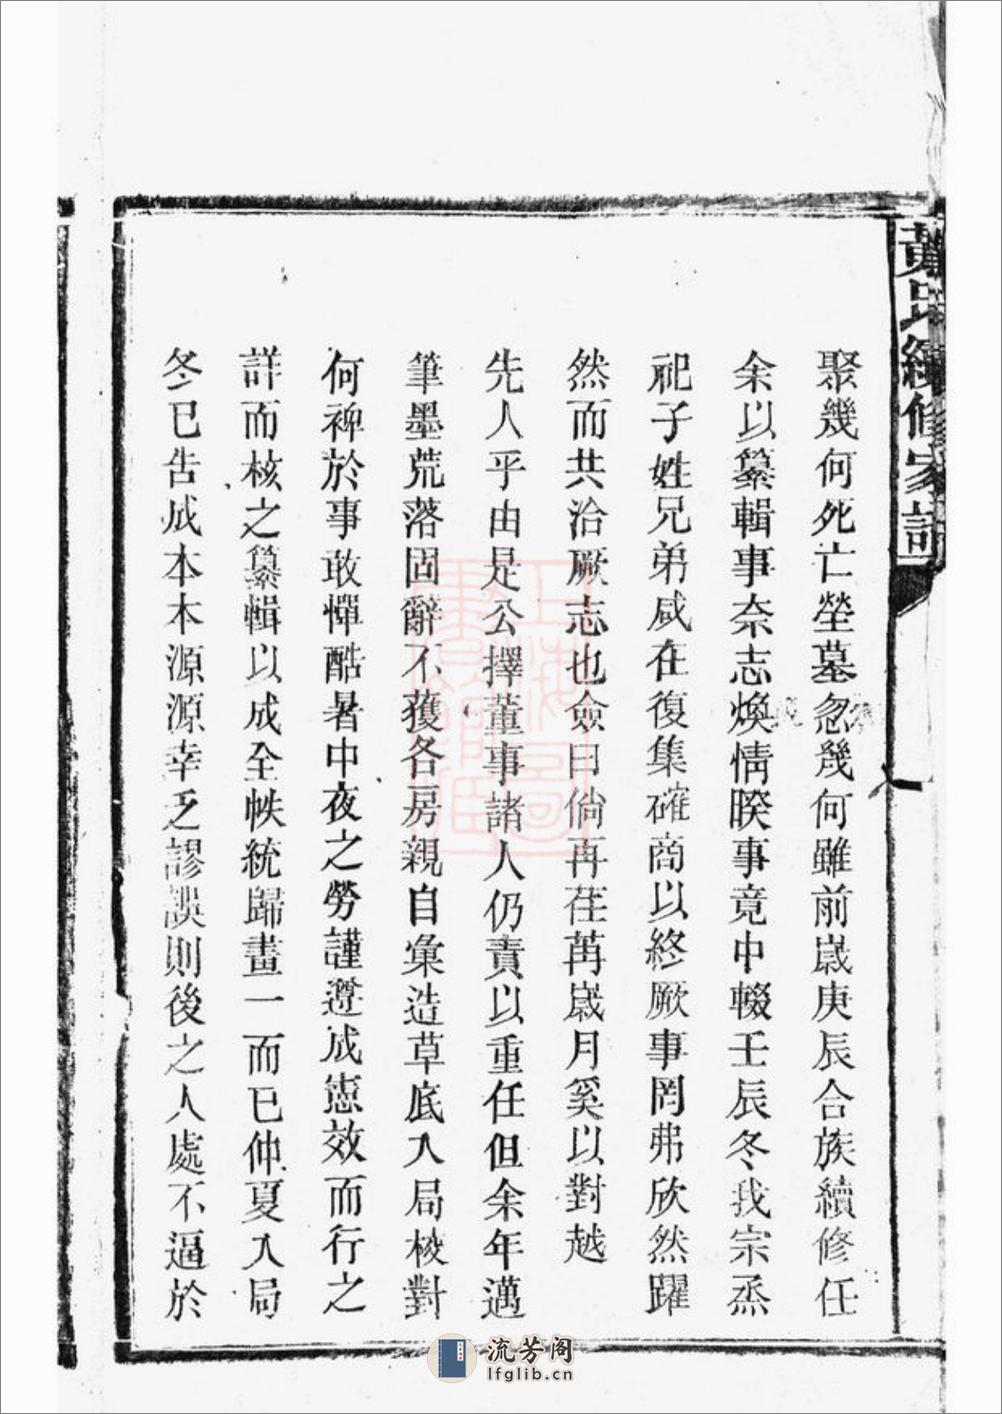 黃氏續修家譜
聚幾何死亡塋墓忽幾何雖前嵗庚辰合族續修任
余以纂輯事奈志煥情暌事竟中輟壬辰冬我宗烝
祀子姓兄弟咸在復集確商以終厥事罔弗欣然躍
然而共洽厥志也僉曰倘再荏苒嵗月奚以對越
先人乎由是公擇董事諸人仍責以重任但余年邁
筆墨荒落固辭不獲各房親自彙造草底入局校對
何裨於事敢憚酷暑中夜之勞謹遵成憲效而行之
詳而核之纂輯以成全帙統歸畫一而已仲夏入局
冬已告成本本源源幸乏謬誤則後之人處不逼於
上海圖書館藏
流芳阁
lfglib.cn